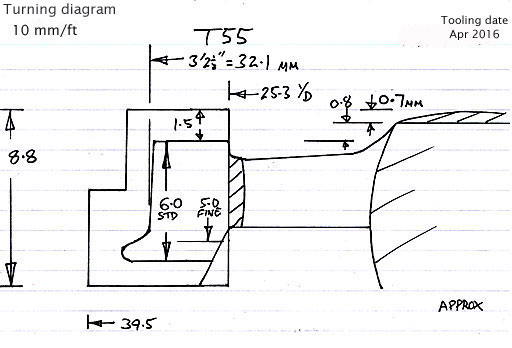 Turning diagram
10 mm/ft
Tooling date
Apr 2016
T55
3'2½"=32.1 MM
25.3 I/D
0.8
0.7MM
1.5
8.8
6.0
STD
5.0
FINE
APPROX
39.5